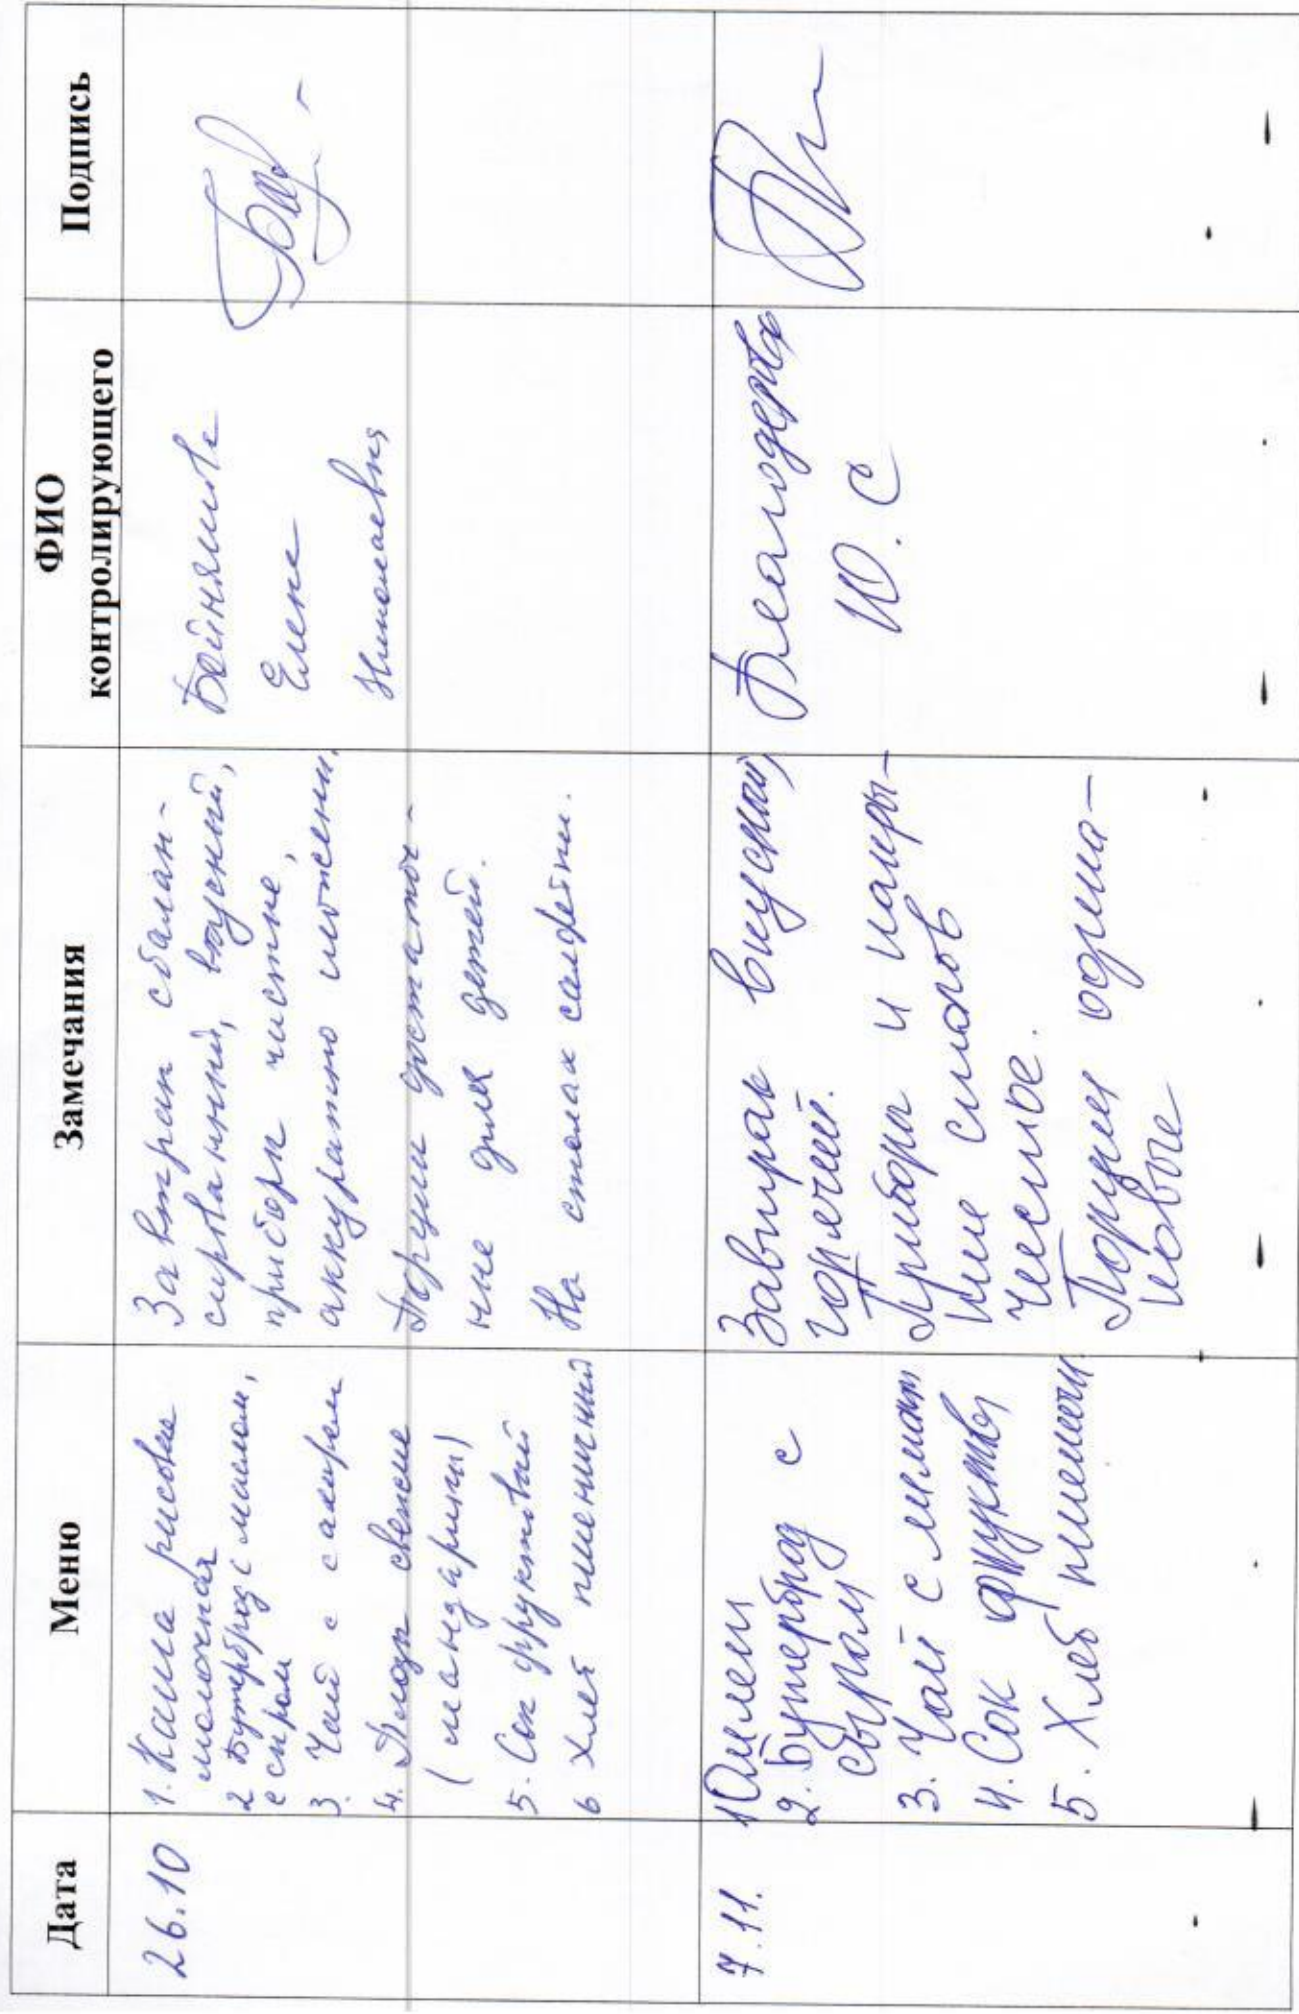 Дата
Меню
Замечания
ФИО
контролирующего
Подпись
26.10
1. Каша рисовая
молочная
2 Бутерброд с маслом,
с сыром
3. Чай с сахаром
4. Плоды свежие
(мандарины)
5. Сок фруктовый
6 Хлеб пшеничный
Завтрак сбалан-
сированный, вкусный,
приборы чистые,
аккуратно уложены,
Порции достаточ-
ные для детей.
На столах салфетки.
Елена
Николаевна
7.11.
1 Омлет
2. Бутерброд с
сыром
3. Чай с лимон
4. Сок фруктов
5. Хлеб пшеничн
Завтрак вкусный,
горячий.
Приборы и накры-
тие столов
чистые.
Порции одина-
ковые
Ю. С